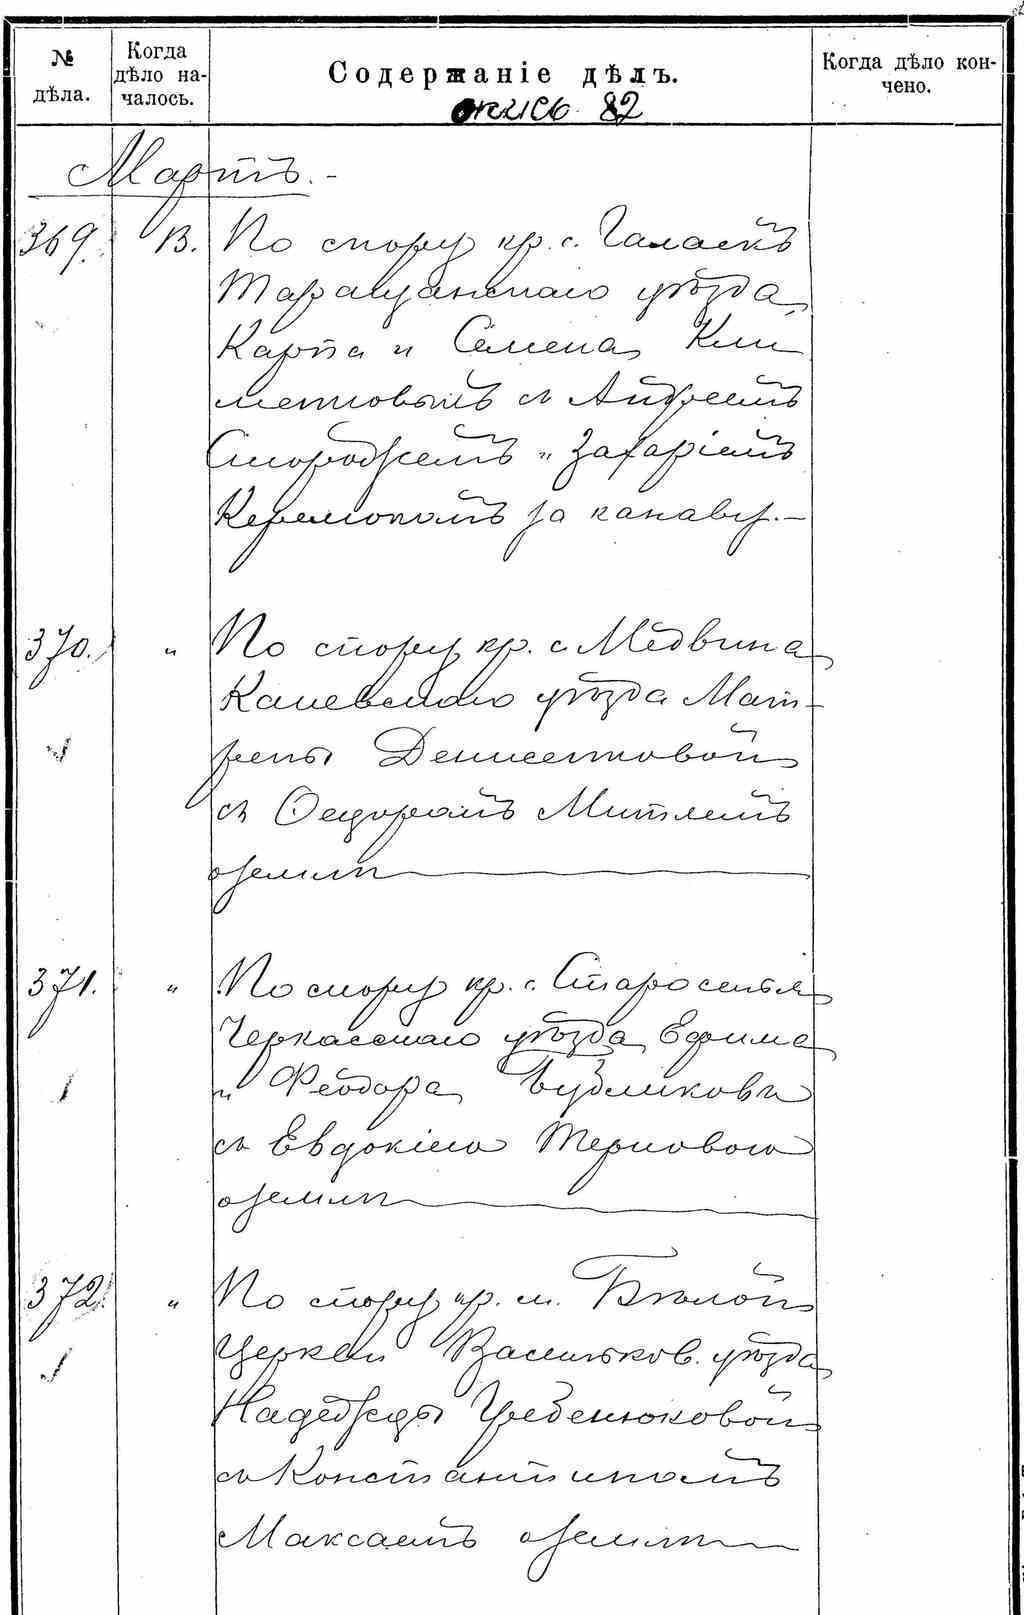 № дѣла.
Когда дѣло началось.
Содержаніе дѣлъ.
Когда дѣло кончено.
опись 82
Мартъ. -
369. 13. По спору кр. с.
Таращанскаго уѣзда
Карпа и Семена Кли
менковыхъ съ Андреемъ
Сторожемъ и Захаріемъ
за канаву. -
370. " По спору кр. с. Медвина
Каневскаго уѣзда Мат-
рены Денисенковой
съ Ѳедоромъ
о землѣ
371. " По спору кр. с. Староселья
Черкасскаго уѣзда Ефима
и Феодора
съ Евдокіею Терновою
о землѣ
372. " По спору кр. м. Бѣлой
Церкви Васильков. уѣзда
Надежды Гребенюковой
съ Константиномъ
о землѣ